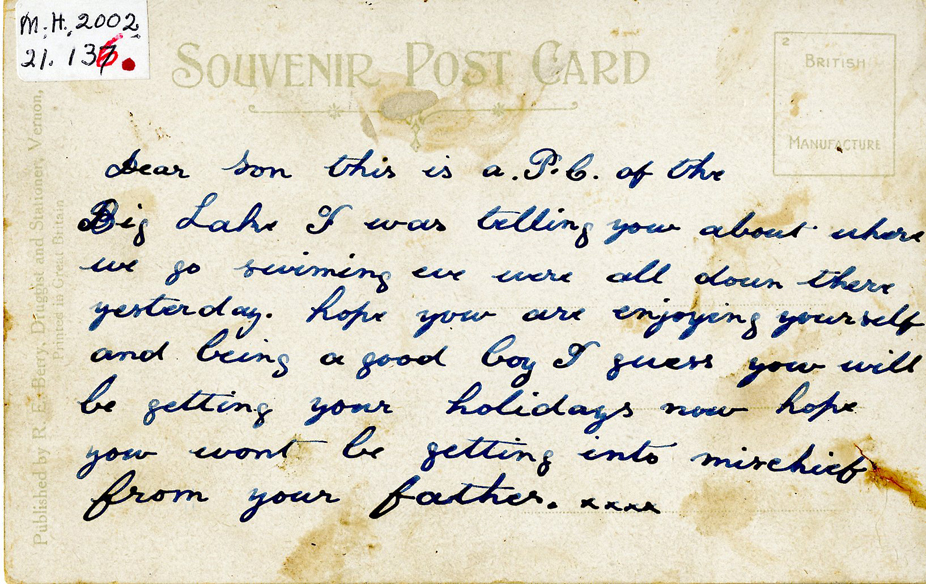 M.H. 2002
21. 136.
SOUVENIR POST CARD
2
BRITISH
MANUFACTURE
Dear son this is a.P.C. of the
Big Lake I was telling you about where
we go swiming we were all down there
yesterday. hope you are enjoying yourself
and being a good boy I guess you will
be getting your holidays now hope
you wont be getting into mischief
from your father. xxxx
Published by R. E. Berry, Druggist and Stationer, Vernon,
Printed in Great Britain